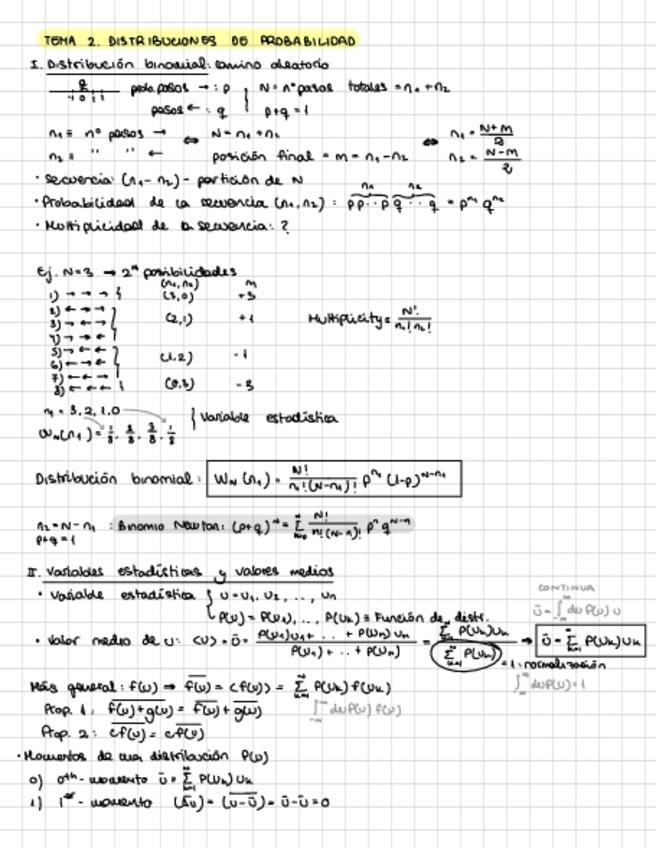 TEMA 2. DISTRIBUCIONES DE PROBABILIDAD
I. Distribución binomial: camino aleatorio
-1 0 1 prob. pasos → : p N = nº pasos totales = n₁ + n₂
pasos ← : q p+q = 1
n₁ ≡ nº pasos → ⇔ N = n₁ + n₂ ⇔ n₁ = (N+m)/2
n₂ ≡ " " ← posición final = m = n₁ - n₂ n₂ = (N-m)/2
· Secuencia: (n₁ - n₂) - partición de N
· Probabilidad de la secuencia (n₁, n₂) : p p ·· p q ·· q = p^n₁ q^n₂
· Multiplicidad de la secuencia: ?
Ej. N=3 → 2^N posibilidades
(n₁, n₂) m
1) → → → (3,0) +3
2) ← → →
3) → ← → (2,1) +1 Multiplicity = N!/(n₁! n₂!)
4) → → ←
5) → ← ←
6) ← → ← (1,2) -1
7) ← ← →
8) ← ← ← (0,3) -3
n₁ = 3, 2, 1, 0
W_N(n₁) = 1/8, 3/8, 3/8, 1/8 } Variable estadística
Distribución binomial: W_N(n₁) = N!/(n₁!(N-n₁)!) p^n₁ (1-p)^(N-n₁)
n₂ = N - n₁ : Binomio Newton: (p+q)^N = Σ N!/(n!(N-n)!) p^n q^(N-n)
p+q = 1
II. Variables estadísticas y valores medios
· Variable estadística { U = U₁, U₂, ..., Un
P(U) = P(U₁), ..., P(Un) ≡ Función de distr.
CONTINUA
Ū = ∫ dU P(U) U
· Valor medio de U: <U> = Ū = (P(U₁)U₁ + .. + P(Un)Un)/(P(U₁) + .. + P(Un)) = Σ P(Uk)Uk / Σ P(Uk) → Ū = Σ P(Uk)Uk
= 1: normalización
∫ dU P(U) = 1
Más general: f(U) → f̅(̅U̅)̅ = <f(U)> = Σ P(Uk) f(Uk)
∫ dU P(U) f(U)
Prop. 1: f̅(̅U̅)̅+̅g̅(̅U̅)̅ = f̅(̅U̅)̅ + g̅(̅U̅)̅
Prop. 2: c̅f̅(̅U̅)̅ = c f̅(̅U̅)̅
· Momentos de una distribución P(U)
0) 0th - momento Ū = Σ P(Uk) Uk
1) 1st - momento (Δ̅U̅) = (U̅-̅Ū̅) = Ū - Ū = 0